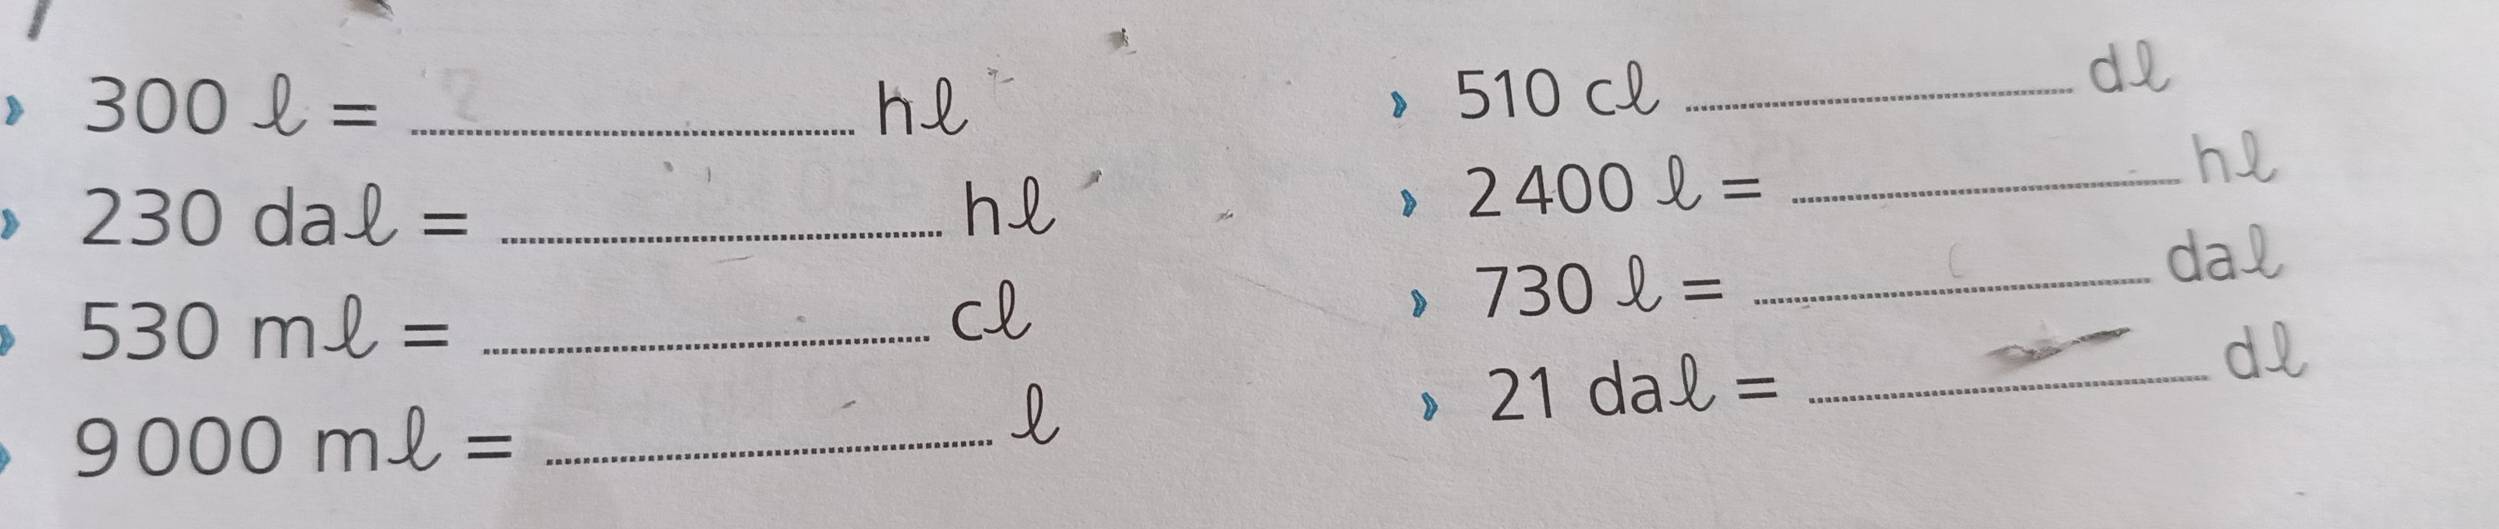 » 300 ℓ = .................... hℓ
» 230 daℓ = .................... hℓ
» 530 mℓ = .................... cℓ
» 9 000 mℓ = .................... ℓ
» 510 cℓ .................... dℓ
» 2 400 ℓ = .................... hℓ
» 730 ℓ = .................... daℓ
» 21 daℓ = .................... dℓ